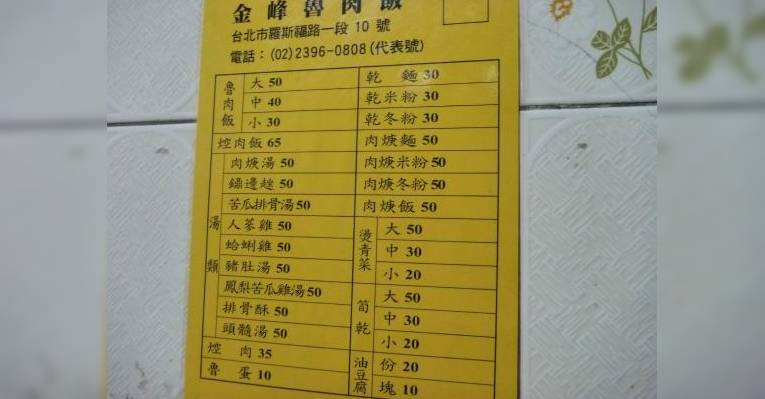 金峰魯肉飯
台北市羅斯福路一段 10 號
電話：(02)2396-0808(代表號)
魯肉飯
大 50
中 40
小 30
焢肉飯 65
湯類
肉焿湯 50
鏽邊趖 50
苦瓜排骨湯 50
人蔘雞 50
蛤蜊雞 50
豬肚湯 50
鳳梨苦瓜雞湯 50
排骨酥 50
頭髓湯 50
焢肉 35
魯蛋 10
乾麵 30
乾米粉 30
乾冬粉 30
肉焿麵 50
肉焿米粉 50
肉焿冬粉 50
肉焿飯 50
燙青菜
大 50
中 30
小 20
筍乾
大 50
中 30
小 20
油豆腐
份 20
塊 10